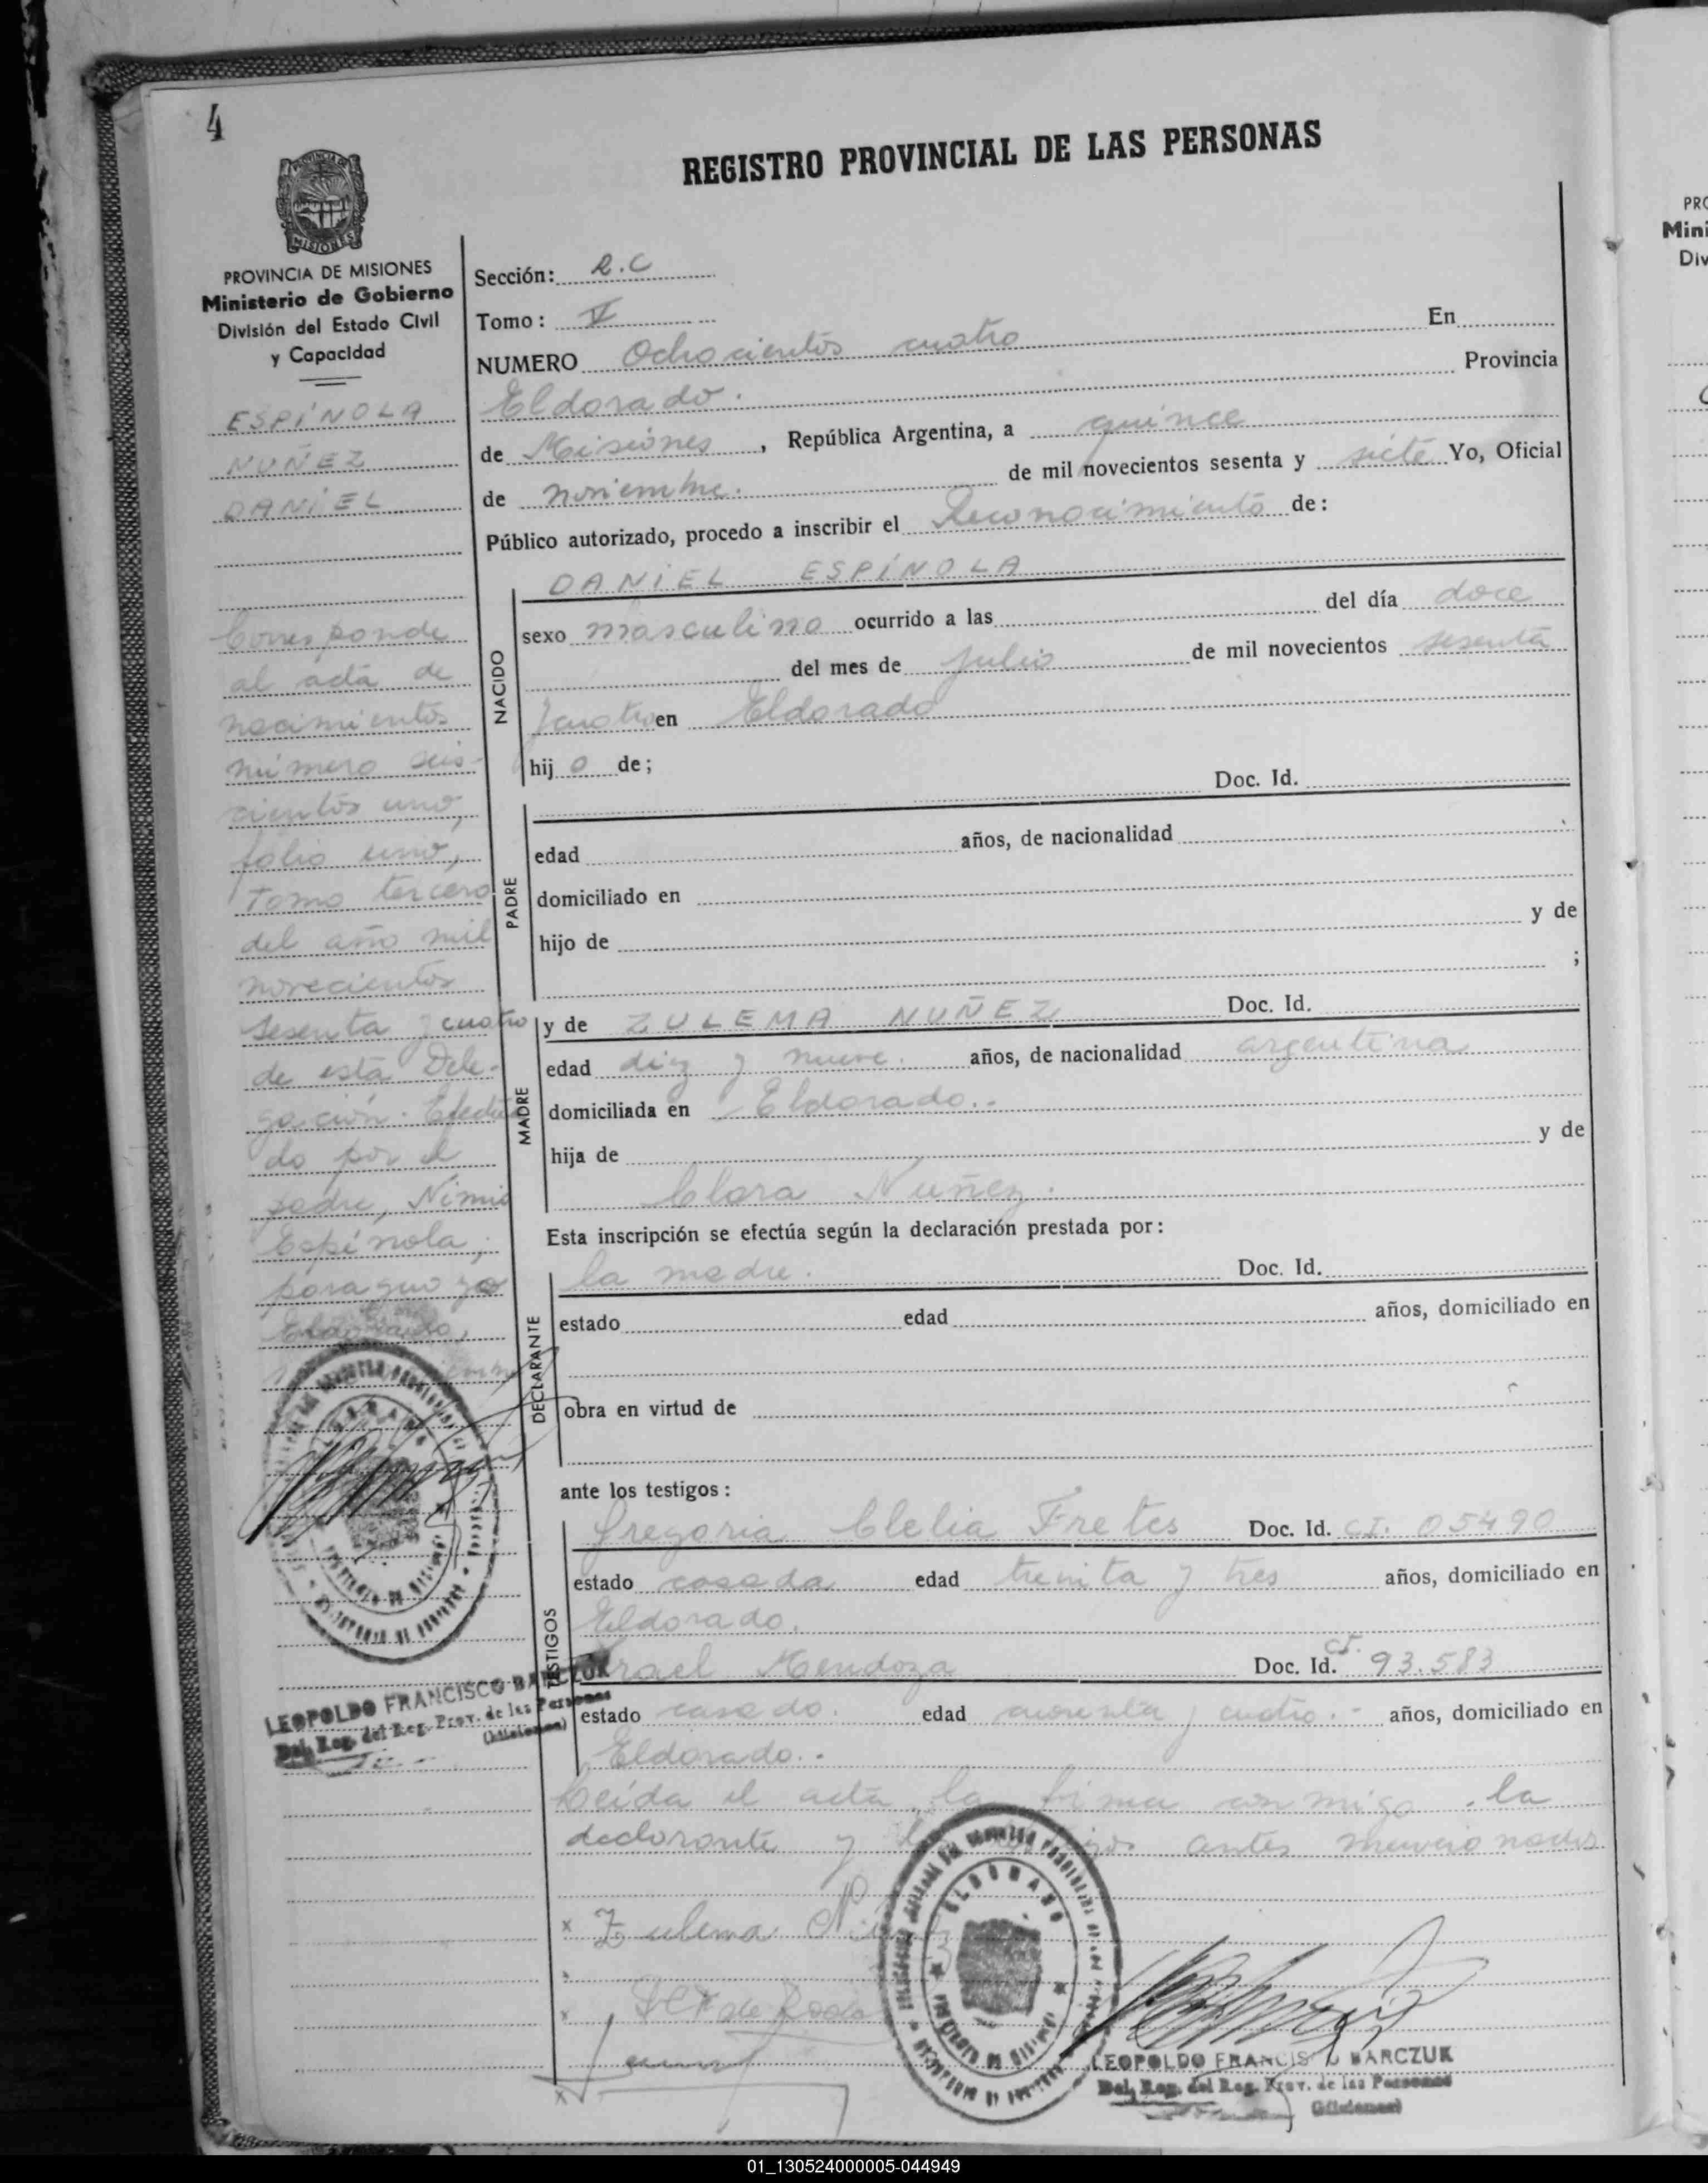 4
REGISTRO PROVINCIAL DE LAS PERSONAS
MISIONES
PROVINCIA DE MISIONES
Ministerio de Gobierno
División del Estado Civil
y Capacidad
ESPÍNOLA
NUÑEZ
DANIEL
Corresponde
al acta de
nacimientos
número seis-
cientos uno,
folio uno,
Tomo tercero
del año mil
novecientos
sesenta y cuatro
de esta Dele-
gación. Efectua
do por el
padre, Nimio
Espínola,
paraguayo
Eldorado,
LEOPOLDO FRANCISCO BARCZUK
Del. Reg. del Reg. Prov. de las Personas
(Misiones)
Sección: R.C
Tomo: V
NUMERO Ochocientos cuatro En
Eldorado. Provincia
de Misiones, República Argentina, a quince
de noviembre. de mil novecientos sesenta y siete Yo, Oficial
Público autorizado, procedo a inscribir el Reconocimiento de:
NACIDO
DANIEL ESPÍNOLA
sexo masculino ocurrido a las del día doce
del mes de julio de mil novecientos sesenta
y cuatro en Eldorado
hij o de;
PADRE
Doc. Id.
edad años, de nacionalidad
domiciliado en
hijo de y de
;
MADRE
y de ZULEMA NUÑEZ Doc. Id.
edad diez y nueve. años, de nacionalidad argentina
domiciliada en Eldorado..
hija de y de
Clara Nuñez.
Esta inscripción se efectúa según la declaración prestada por:
DECLARANTE
la madre. Doc. Id.
estado edad años, domiciliado en
obra en virtud de
ante los testigos:
TESTIGOS
Gregoria Clelia Fretes Doc. Id. CI. 05490
estado casada edad treinta y tres años, domiciliado en
Eldorado.
Mendoza Doc. Id. CI. 93.583
estado casado. edad cuarenta y cuatro.- años, domiciliado en
Eldorado..
Leída el acta, la firma conmigo, la
declarante y antes mencionados.
x Zulema
x
x
x
ELDORADO
LEOPOLDO FRANCISCO BARCZUK
Del. Reg. del Reg. Prov. de las Personas
(Misiones)
PRO
Mini
Div
01_130524000005-044949